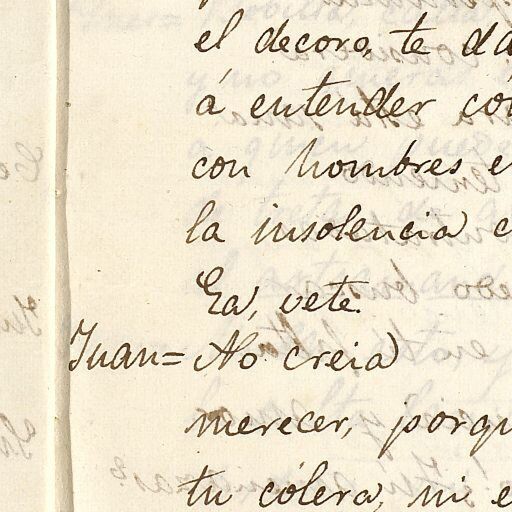 el decoro, te dá
á entender có
con hombres e
la insolencia c
Ea, vete.
Juan= No creia
merecer, porqu
tu cólera, mi e